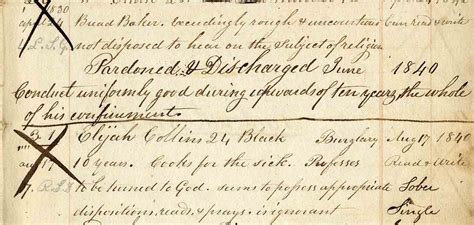 1830
Bread Baker. Exceedingly rough & uncourteous Can read & write
not disposed to hear on the Subject of religion
Pardoned & Discharged June 1840
Conduct uniformly good during upwards of ten years the whole
of his confinement.
Elijah Collins 24 Black Burglary Aug 17 1840
10 years. Cooks for the sick. Professes Read & Write
to be turned to God. seems to possess appropriate Sober
dispositions, reads, & prays - is ignorant Single